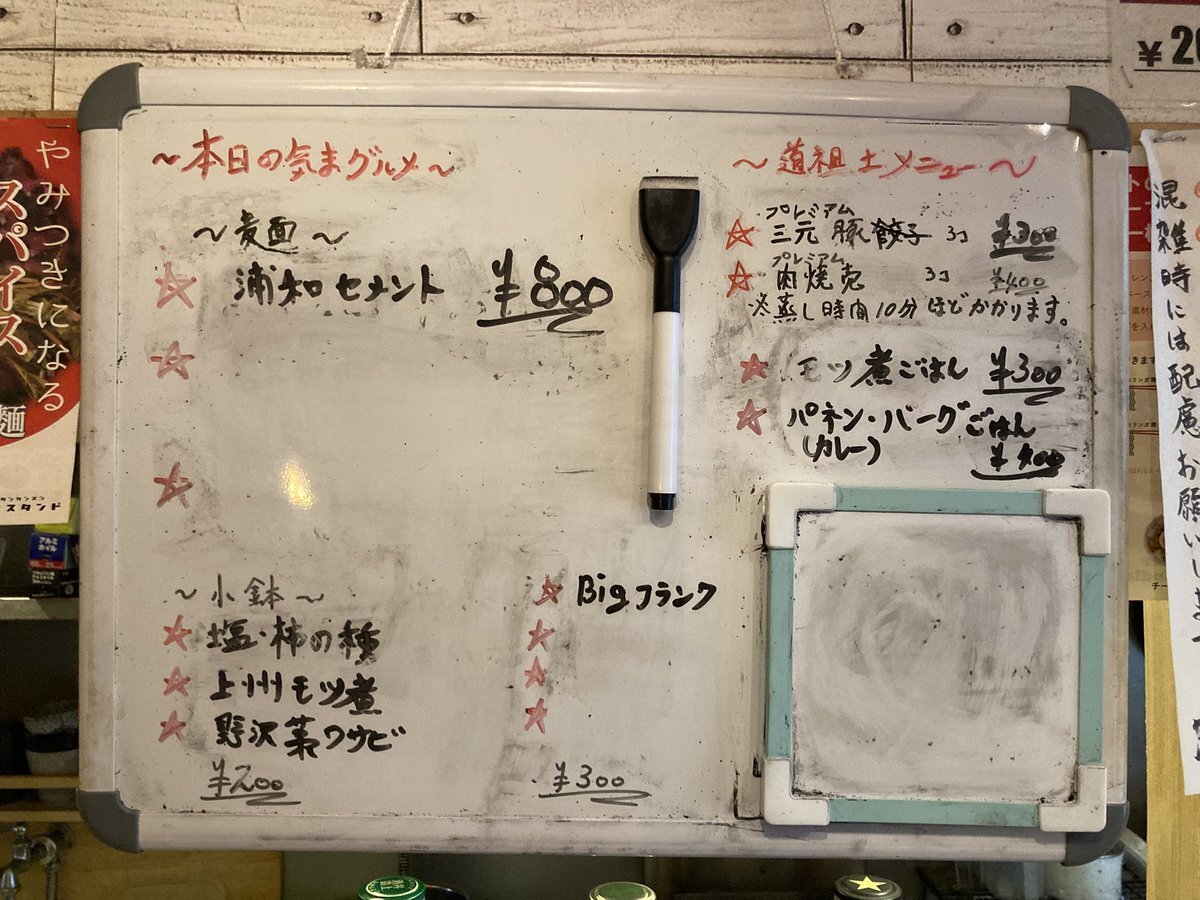 ~本日の気まグルメ~
~麦面~
☆ 浦和セメント ¥800
☆
☆
~小鉢~
☆ 塩・柿の種
☆ 上州モツ煮
☆ 野沢菜ワサビ
¥200
☆ Bigフランク
☆
☆
☆
¥300
~道祖土メニュー~
プレミアム
☆ 三元豚餃子 3コ ¥300
プレミアム
☆ 肉焼売 3コ ¥400
※蒸し時間10分ほどかかります。
☆ モツ煮ごはん ¥300
☆ パネン・バーグごはん
(カレー)
¥400
やみつきになる
スパイス
麺
タンタンメン
スタンド
アルミ
ホイル
¥20
混雑時には配慮お願いし